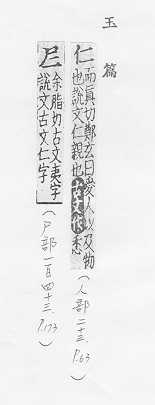 玉篇
仁 而眞切鄭玄曰愛人以及物
也說文仁親也古文作忎
（人部二十三、P.63）
𡰥 余脂切古文夷字
說文古文仁字
（尸部一百四十三、P.173）